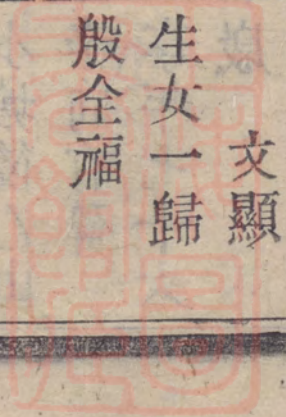 文顯
生女一歸
殷全福